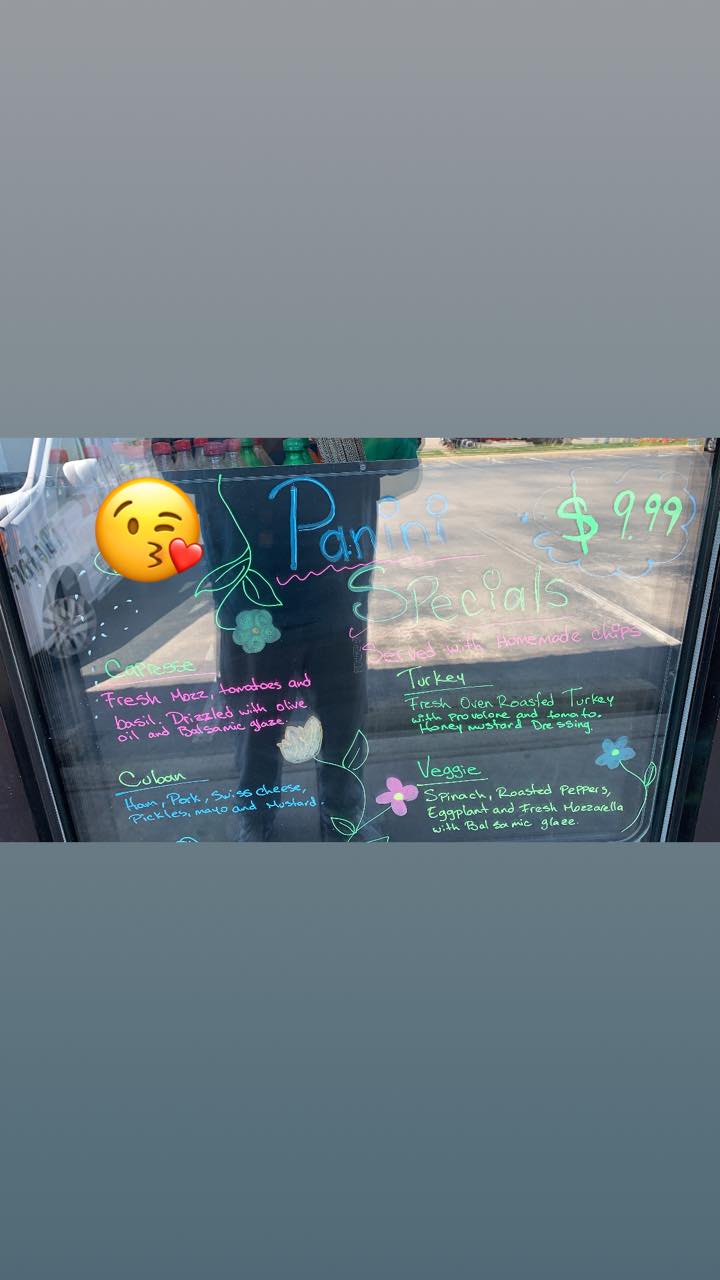 Panini
$9.99
Specials
Served with Homemade chips
Capresse
Fresh Mozz, tomatoes and
basil. Drizzled with olive
oil and Balsamic glaze.
Turkey
Fresh Oven Roasted Turkey
with provolone and tomato.
Honey mustard Dressing.
Cuban
Ham, Pork, Swiss cheese,
Pickles, mayo and Mustard.
Veggie
Spinach, Roasted Peppers,
Eggplant and Fresh Mozzarella
with Balsamic glaze.